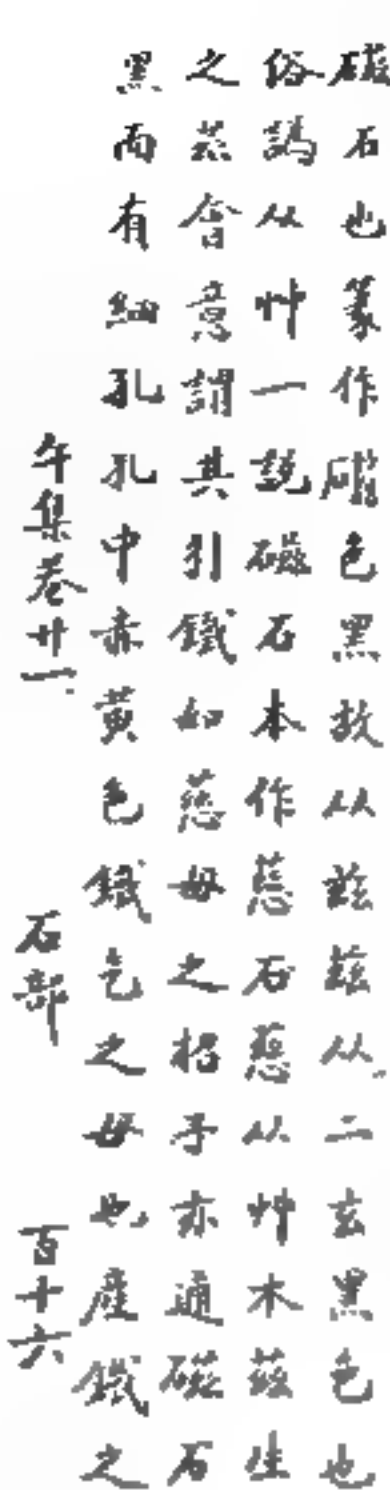 磁石也篆作䃣色黑故从玆玆从二玄黑色也
俗譌从艸一說磁石本作慈石慈从艸木茲生
之茲會意謂其引鐵如慈母之招子亦通磁石
黑而有細孔孔中赤黃色鐵乞之母也產鐵之
午集卷廿一 石部 百十六